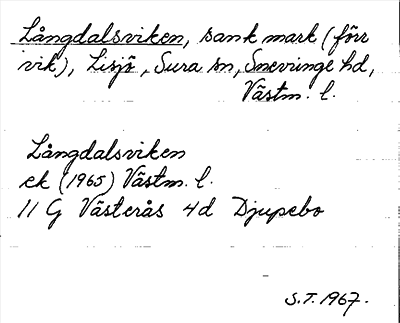 Långdalsviken, sank mark (förr
vik), Lisjö, Sura sn, Snevringe hd,
Västm. l.
Långdalsviken
ek (1965) Västm. l.
11 G Västerås 4d Djupebo
S.T. 1967.